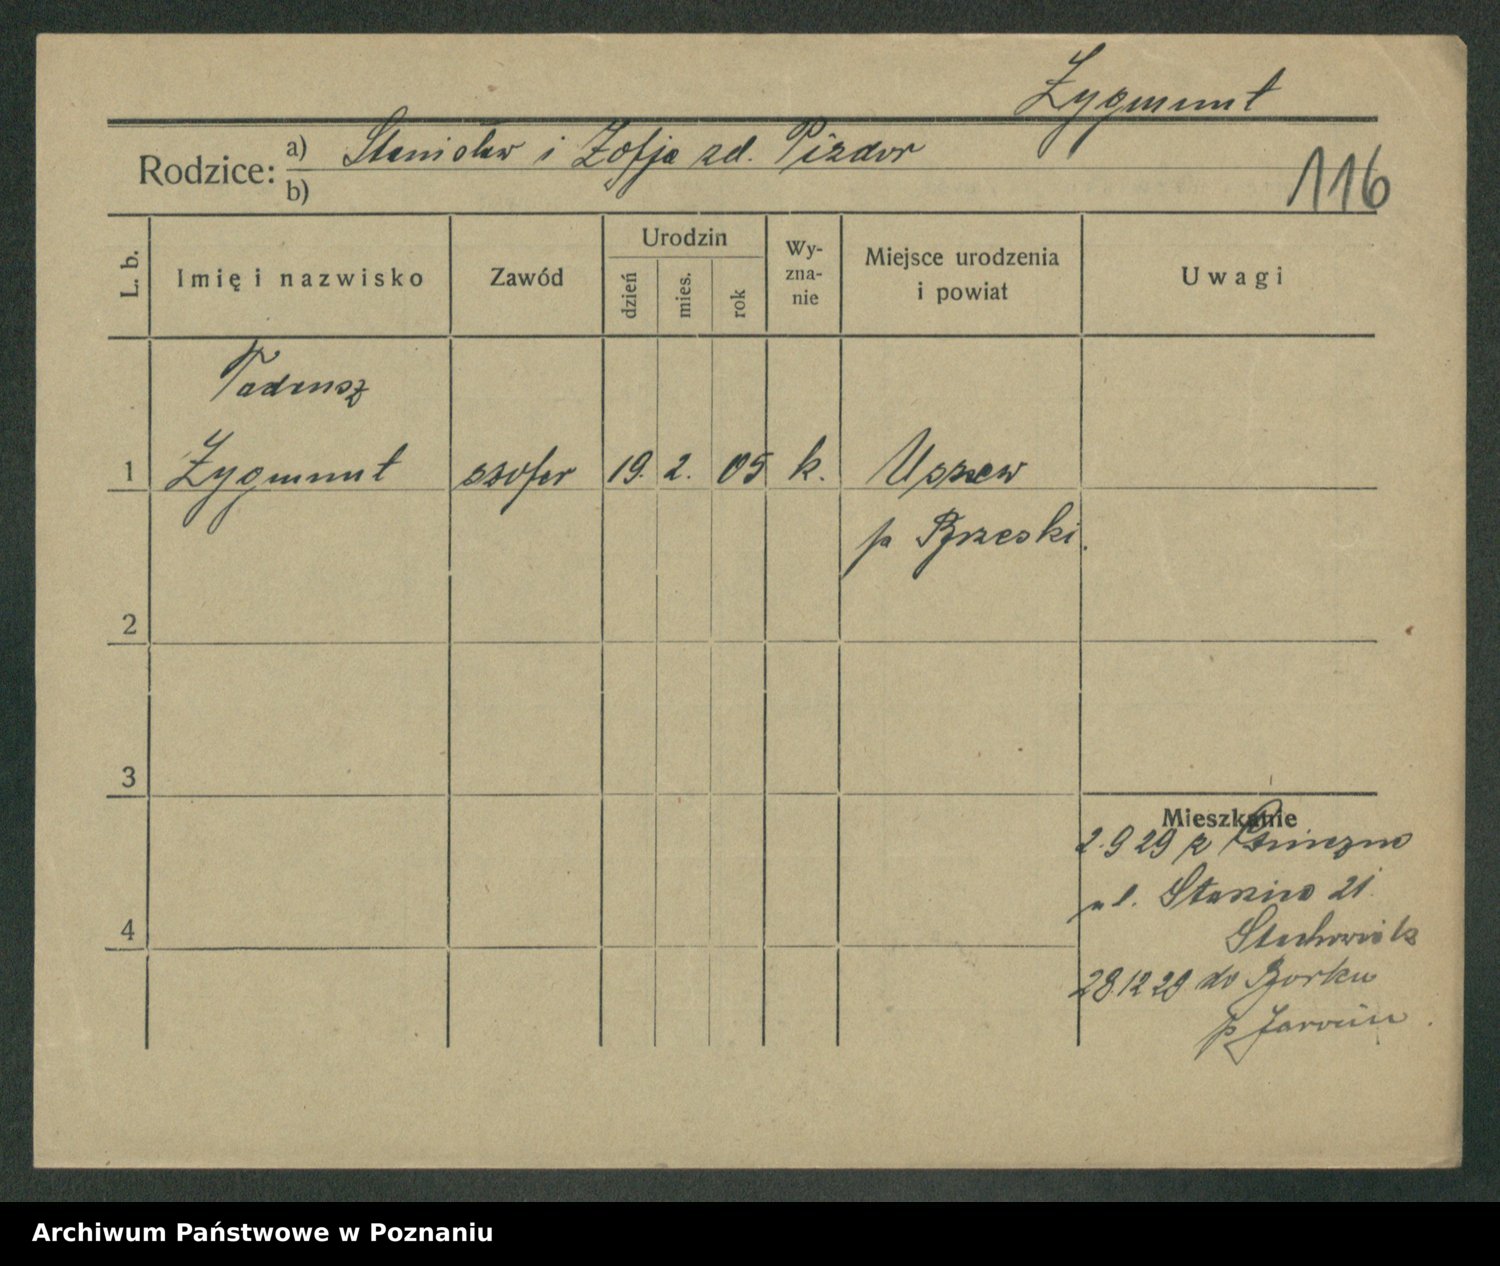 Zygmunt
Rodzice: a) Stanisław i Zofja zd. Pizdor
b)
116
L. b.
Imię i nazwisko
Zawód
Urodzin
dzień
mies.
rok
Wy-
zna-
nie
Miejsce urodzenia
i powiat
Uwagi
Tadeusz
1 Zygmunt szofer 19. 2. 05 k. Uszew
p Brzeski.
2
3
Mieszkanie
2.9 29 z Gniezno
ul. 21.
4
28.12 29 do Borku
p Jarocin
Archiwum Państwowe w Poznaniu